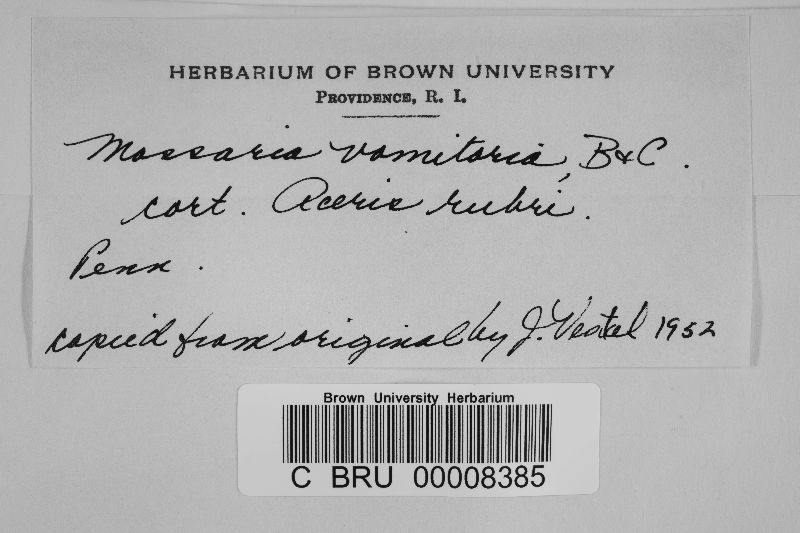 HERBARIUM OF BROWN UNIVERSITY
PROVIDENCE, R. I.
Massaria vomitoria, B&C.
cort. Aceris rubri.
Penn.
copied from original by J. Vestal 1952
Brown University Herbarium
C BRU 00008385